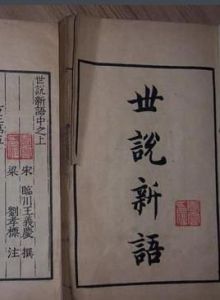 世說新語
世說新語中之上
宋 臨川王義慶 撰
梁 劉孝標 注